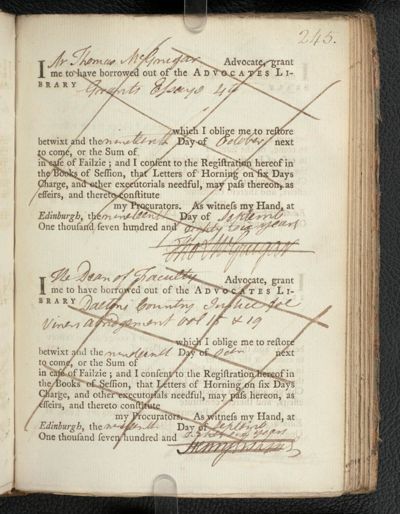 245.
I Mr Thomas McGrugar Advocate, grant
me to have borrowed out of the ADVOCATES LI-
BRARY Grants Essays 4to
which I oblige me to reſtore
betwixt and the nineteenth Day of October next
to come, or the Sum of
in caſe of Failzie ; and I conſent to the Regiſtration hereof in
the Books of Seſſion, that Letters of Horning on ſix Days
Charge, and other executorials needful, may paſs thereon, as
effeirs, and thereto conſtitute
my Procurators. As witneſs my Hand, at
Edinburgh, the nineteenth Day of Septemb
One thouſand ſeven hundred and years
Tho: McGrugar
I The Dean of Faculty Advocate, grant
me to have borrowed out of the ADVOCATES LI-
BRARY Daltons Country Justice
Viners abridgement vol 18 & 19
which I oblige me to reſtore
betwixt and the nineteenth Day of next
to come, or the Sum of
in caſe of Failzie ; and I conſent to the Regiſtration hereof in
the Books of Seſſion, that Letters of Horning on ſix Days
Charge, and other executorials needful, may paſs hereon, as
effeirs, and thereto conſtitute
my Procurators. As witneſs my Hand, at
Edinburgh, the nineteenth Day of Septemb
One thouſand ſeven hundred and years